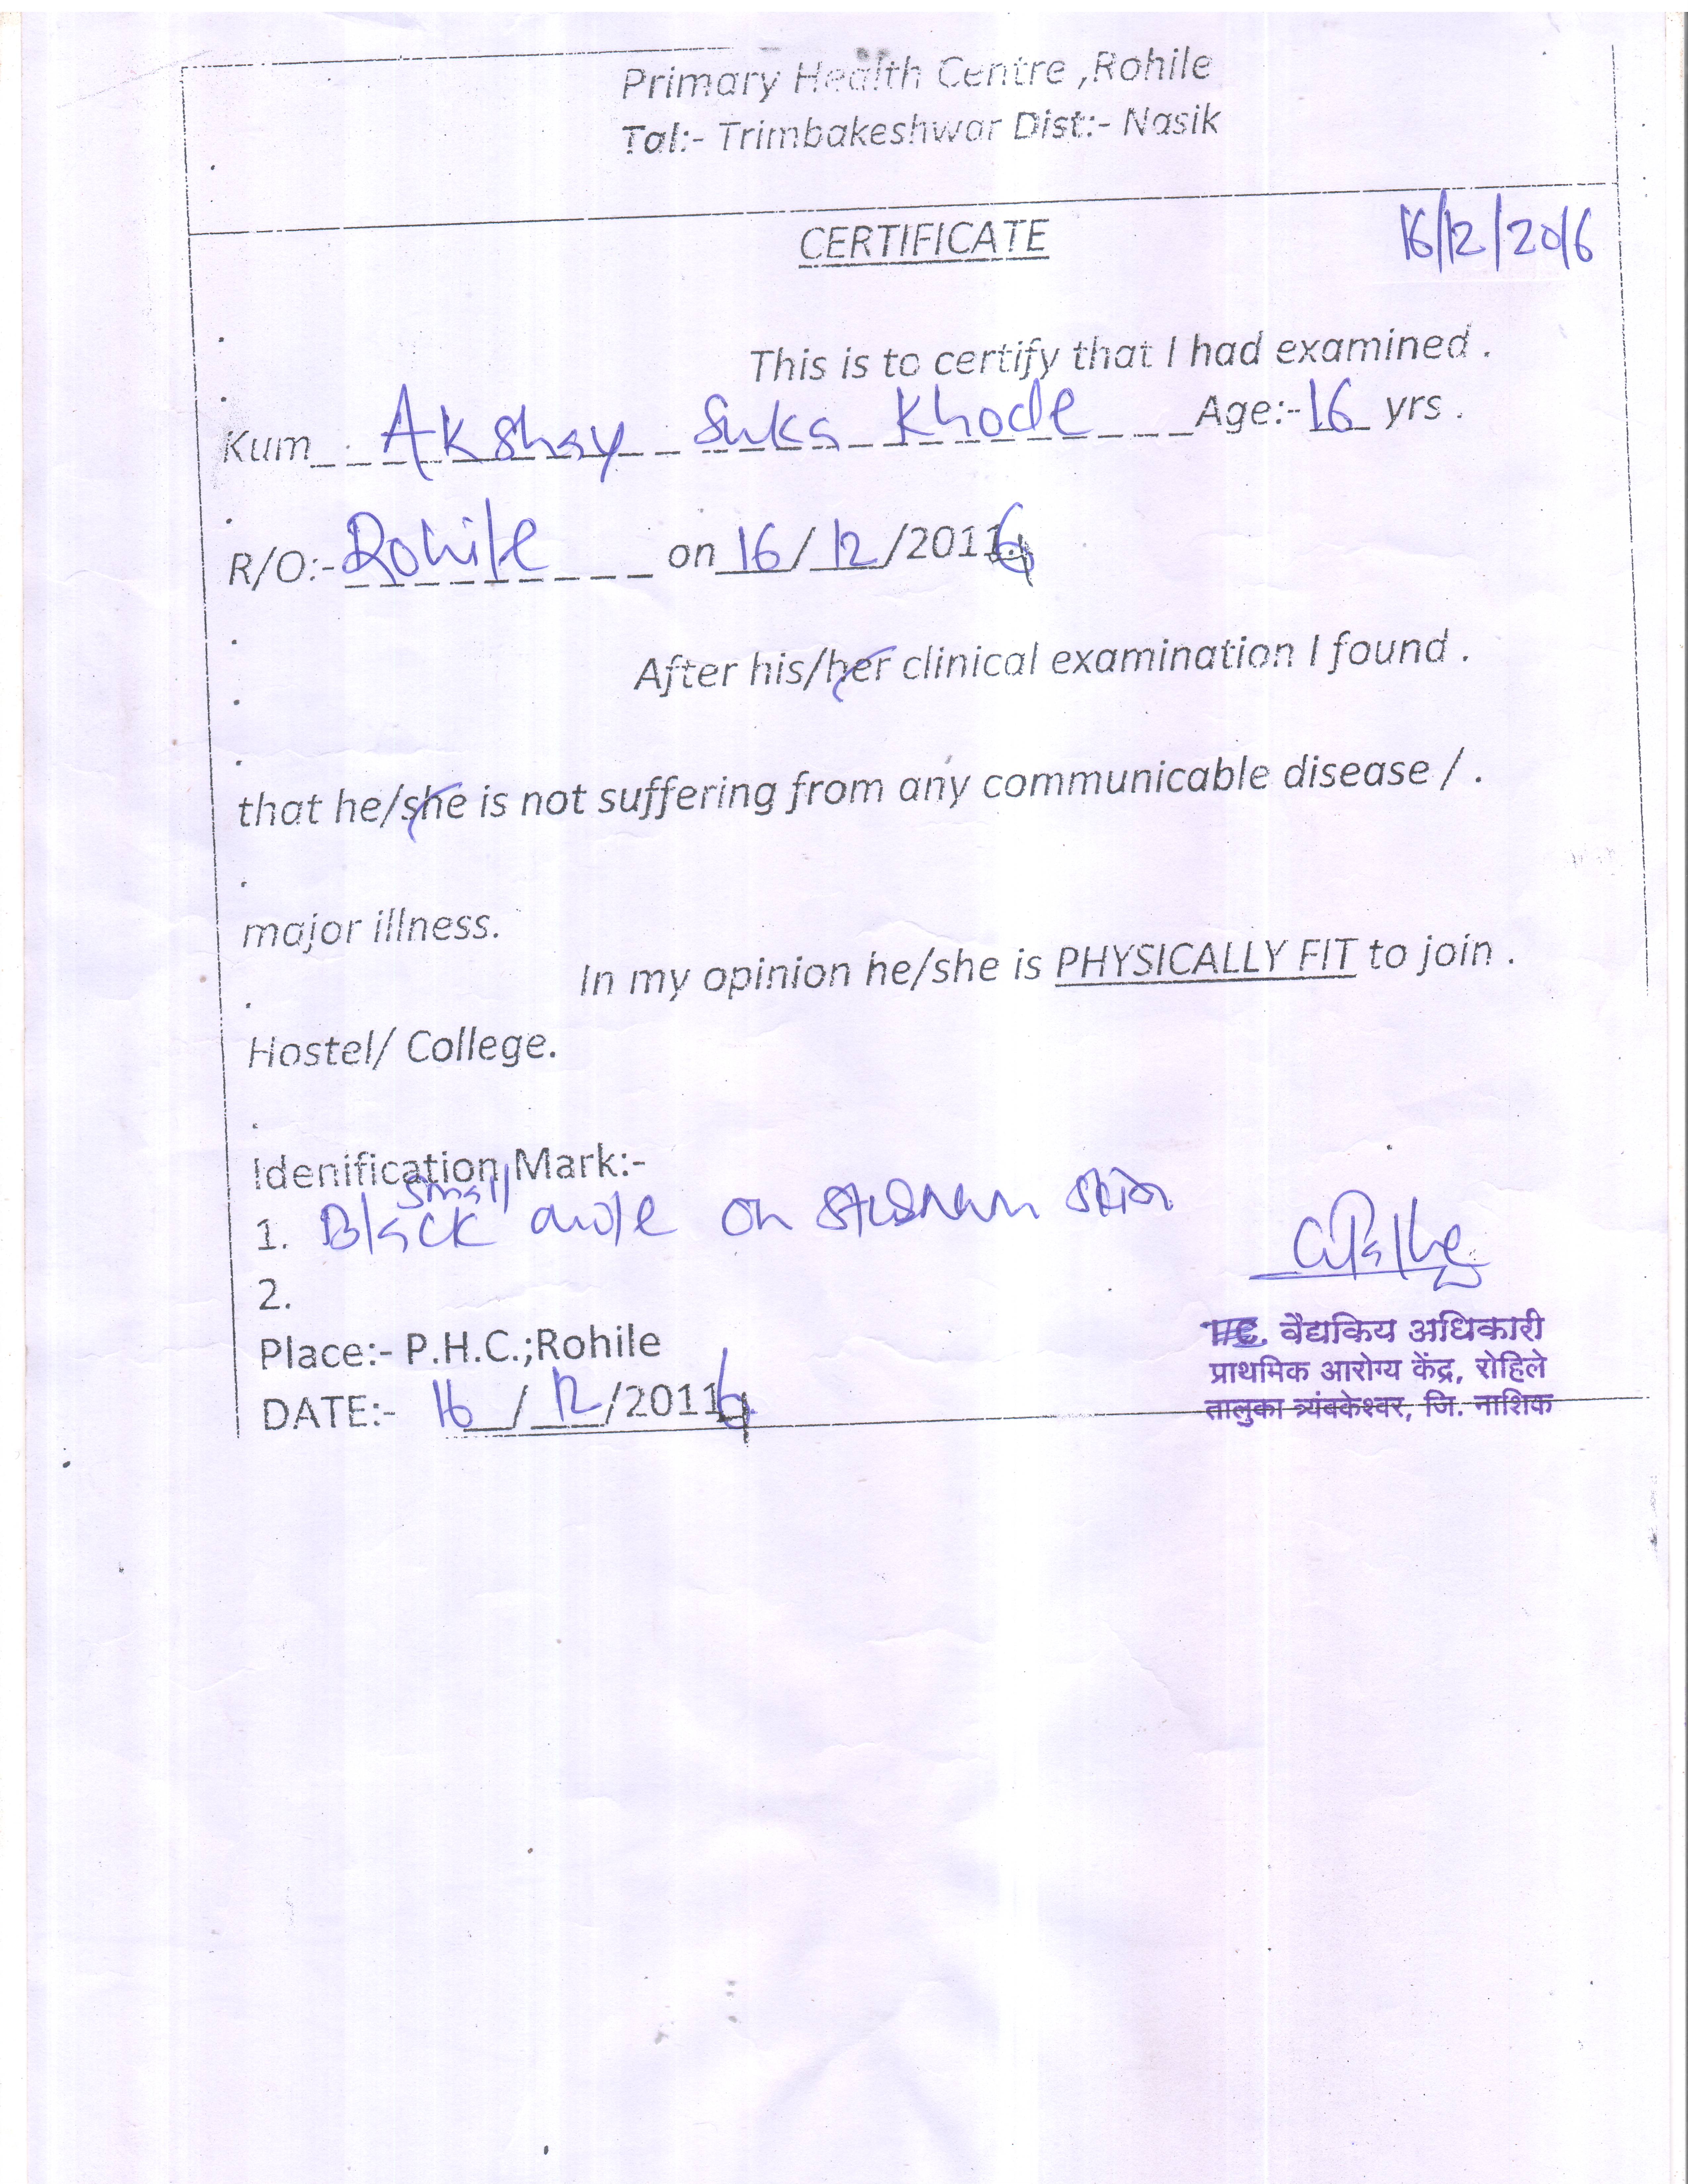 Primary Health Centre ,Rohile
Tal:- Trimbakeshwar Dist:- Nasik
CERTIFICATE
16/12/2016
This is to certify that I had examined .
Kum Akshay Suka Khode Age:- 16 yrs .
R/O:- Rohile on 16/12/2016
After his/her clinical examination I found .
that he/she is not suffering from any communicable disease / .
major illness.
In my opinion he/she is PHYSICALLY FIT to join .
Hostel/ College.
Idenification Mark:-
small
1. Black mole on skin
2.
Place:- P.H.C.;Rohile
DATE:- 16/12/2016
वैद्यकिय अधिकारी
प्राथमिक आरोग्य केंद्र, रोहिले
तालुका त्र्यंबकेश्वर, जि. नाशिक